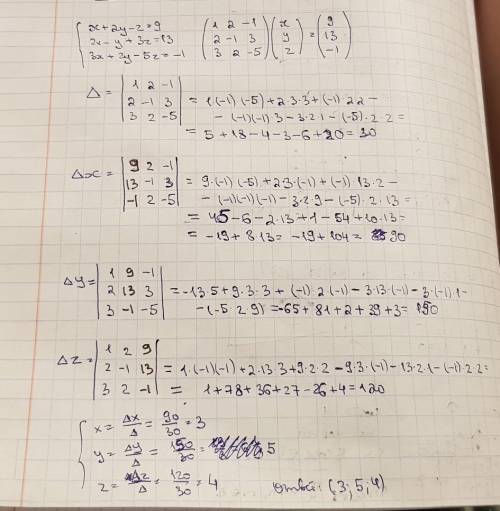 x+2y-z=9
2x-y+3z=13
3x+2y-5z=-1
( 1 2 -1
2 -1 3
3 2 -5 ) ( x
y
z ) = ( 9
13
-1 )
Δ = | 1 2 -1
2 -1 3
3 2 -5 | = 1·(-1)·(-5)+2·3·3+(-1)·2·2-
-(-1)(-1)·3-3·2·1-(-5)·2·2=
= 5+18-4-3-6+20=30
Δx = | 9 2 -1
13 -1 3
-1 2 -5 | = 9·(-1)·(-5)+2·3·(-1)+(-1)·13·2-
-(-1)(-1)(-1)-3·2·9-(-5)·2·13=
= 45-6-2·13+1-54+10·13=
= -19+8·13= -19+104= 90
Δy= | 1 9 -1
2 13 3
3 -1 -5 | =-13·5+9·3·3+(-1)·2·(-1)-3·13·(-1)-3·(-1)·1-
-(-5·2·9)=-65+81+2+39+3=150
Δz= | 1 2 9
2 -1 13
3 2 -1 | = 1·(-1)(-1)+2·13·3+9·2·2-9·3·(-1)-13·2·1-(-1)·2·2=
= 1+78+36+27-26+4=120
x= Δx/Δ = 90/30 =3
y= Δy/Δ = 150/30 = 5
z= Δz/Δ = 120/30 =4
Ответ: (3; 5; 4)